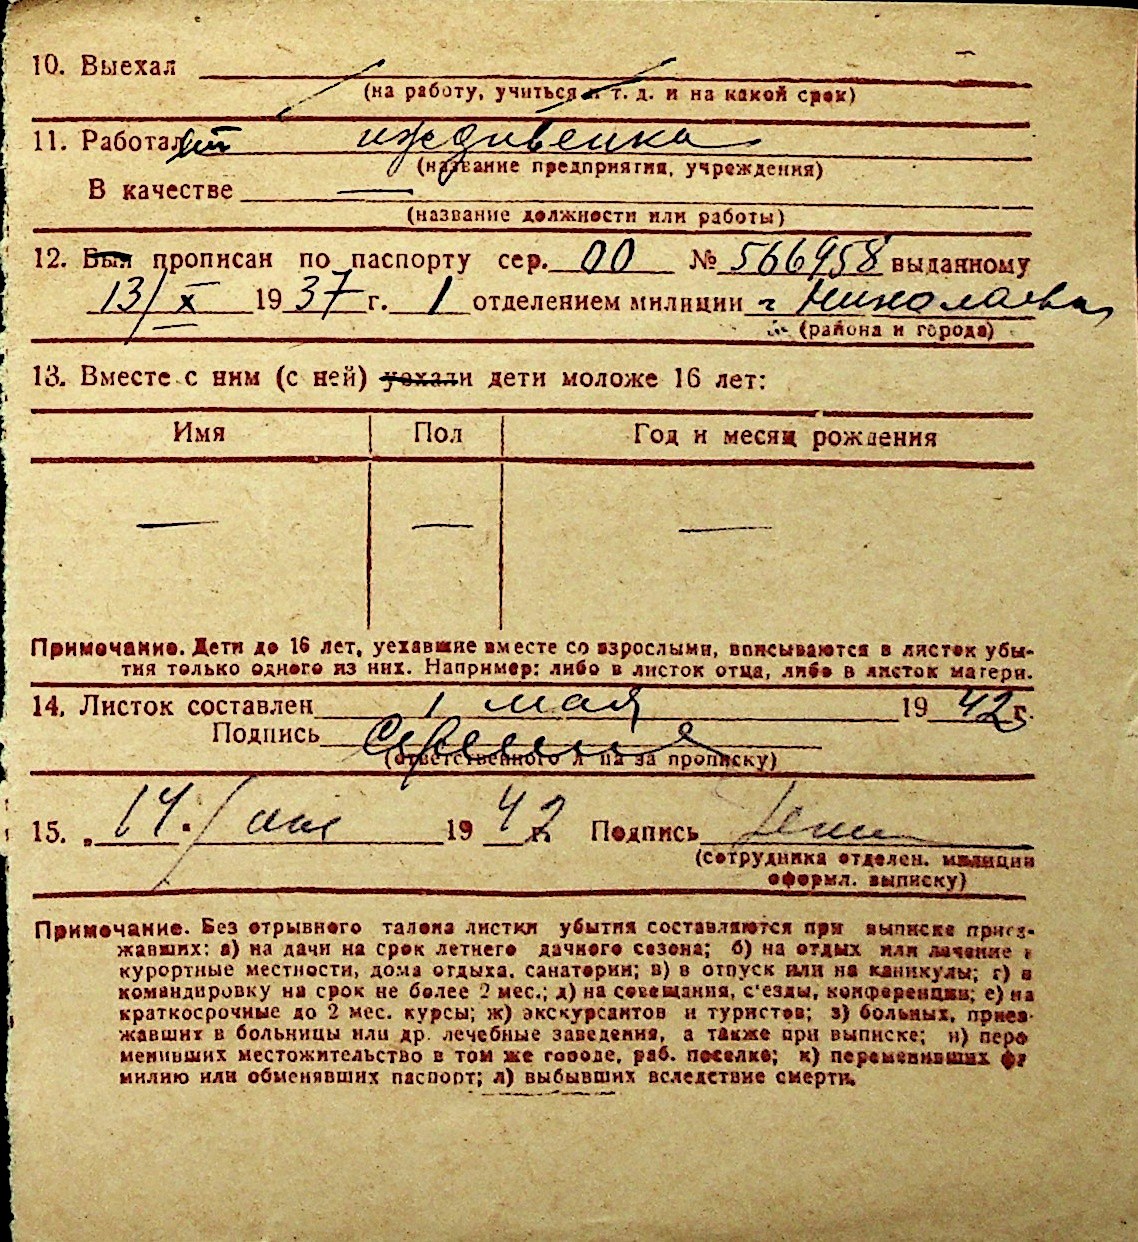 10. Выехал
(на работу, учиться и т. д. и на какой срок)
11. Работал иждивенка
(название предприятия, учреждения)
В качестве —
(название должности или работы)
12. Был прописан по паспорту сер. 00 № 566958 выданному
13/X 1937 г. 1 отделением милиции г Николаева
(района и города)
13. Вместе с ним (с ней) уехали дети моложе 16 лет:
Имя Пол Год и месяц рождения
— — —
Примечание. Дети до 16 лет, уехавшие вместе со взрослыми, вписываются в листок убы-
тия только одного из них. Например: либо в листок отца, либо в листок матери.
14. Листок составлен 1 мая 1942 г.
Подпись
(ответственного л ца за прописку)
15. „14" мая 1942 г. Подпись
(сотрудника отделен. милиции
оформл. выписку)
Примечание. Без отрывного талона листки убытия составляются при выписке приез-
жавших: а) на дачи на срок летнего дачного сезона; б) на отдых или лечение в
курортные местности, дома отдыха, санатории; в) в отпуск или на каникулы; г) в
командировку на срок не более 2 мес.; д) на совещания, с'езды, конференции; е) на
краткосрочные до 2 мес. курсы; ж) экскурсантов и туристов; з) больных, приез-
жавших в больницы или др. лечебные заведения, а также при выписке; и) пере
менивших местожительство в том же городе, раб. поселке; к) переменивших фа
милию или обменявших паспорт; л) выбывших вследствие смерти.